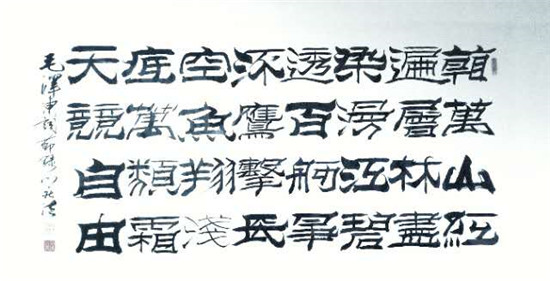 看萬山紅
遍層林盡
染漫江碧
透百舸爭
流鷹擊長
空魚翔淺
底萬類霜
天競自由
毛澤東詞節錄